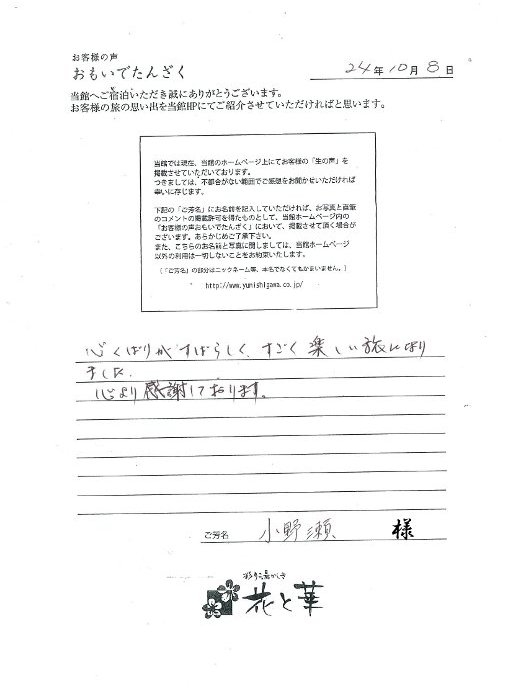 お客様の声
おもいでたんざく
24年10月8日
当館へご宿泊いただき誠にありがとうございます。
お客様の旅の思い出を当館HPにてご紹介させていただければと思います。
当館では現在、当館のホームページ上にてお客様の「生の声」を
掲載させていただいております。
つきましては、不都合がない範囲でご感想をお聞かせいただければ
幸いに存じます。
下記の「ご芳名」にお名前を記入していただければ、お写真と直筆
のコメントの掲載許可を得たものとして、当館ホームページ内の
「お客様の声おもいでたんざく」において、掲載させて頂く場合が
ございます。あらかじめご了承下さい。
また、こちらのお名前と写真に関しましては、当館ホームページ
以外の利用は一切しないことをお約束いたします。
(「ご芳名」の部分はニックネーム等、本名でなくてもかまいません。)
http://www.yunishigawa.co.jp/
心くばりがすばらしく、すごく楽しい旅になり
ました。
心より感謝しております。
ご芳名 小野瀬 様
花と華